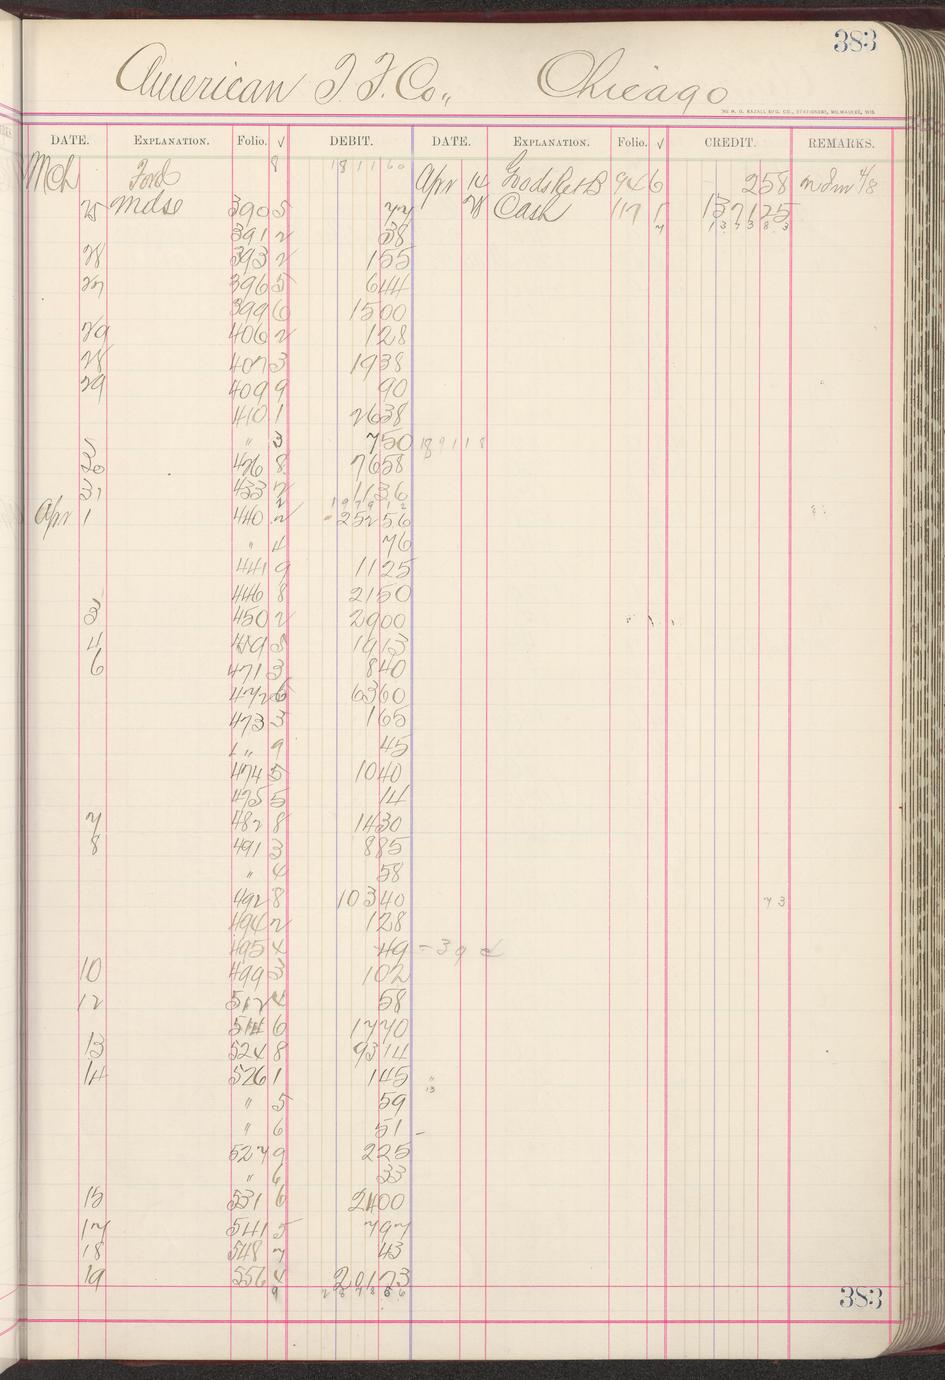 383
American T. F. Co., Chicago
THE H. G. RAZALL MFG. CO., STATIONERS, MILWAUKEE, WIS.
DATE. EXPLANATION. Folio. √ DEBIT. DATE. EXPLANATION. Folio. √ CREDIT. REMARKS.
Mch Ford 8 181160 Apr 14 Goods Ret B 946 258 4/8
25 Mdse 390 5 77 28 Cash 119 1 137125
391 2 38 7 137383
28 393 2 155
27 396 5 644
399 6 1500
29 406 2 128
28 407 3 1938
29 409 9 90
410 1 2638
" 3 750 189118
426 8 7658
31 433 2 1136
2 197912
Apr 1 440 2 25256
" 4 76
441 9 1125
446 8 2150
3 450 2 2900
4 459 5 1913
6 471 3 840
472 6 6360
473 3 165
" 9 45
474 5 1040
475 5 14
7 482 8 1430
8 491 3 885
" 4 58
492 8 10340 73
494 2 128
495 4 49 - 39
10 499 3 102
12 512 4 58
514 6 1770
13 524 8 9314
14 526 1 145
" 5 59 13
" 6 51 -
527 9 225
" 6 33
15 531 6 2400
17 541 5 797
18 548 7 43
19 556 4 20173
9 287866
383